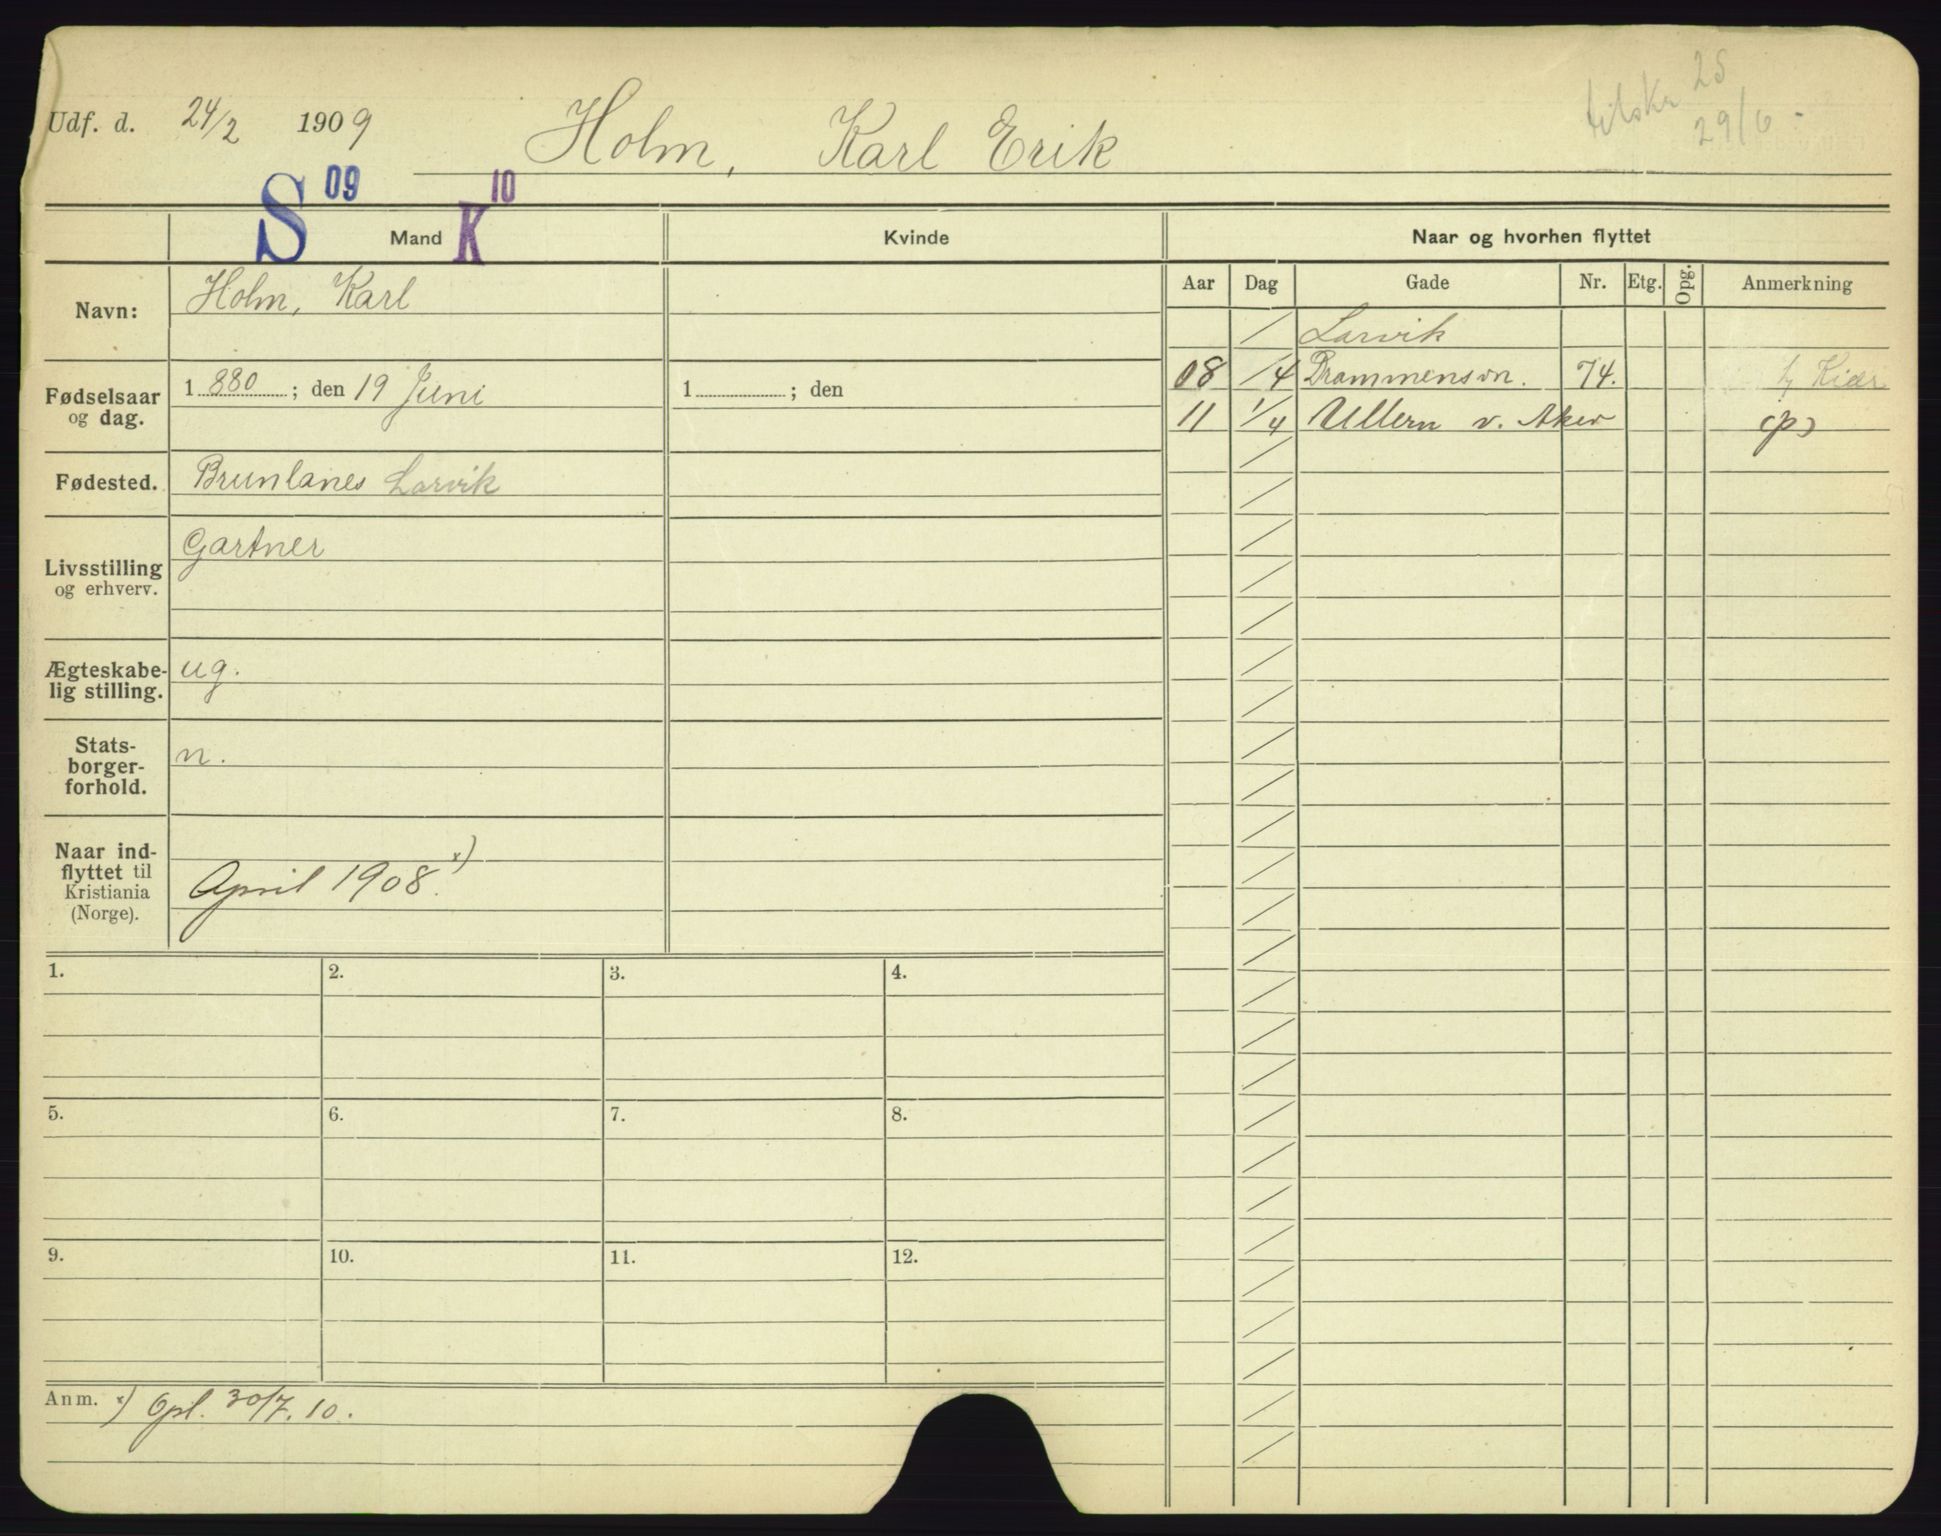 Udf. d. 24/2 1909 Holm, Karl Erik
tilskr 25
29/6
S 09 K 10
Mand Kvinde Naar og hvorhen flyttet
Aar Dag Gade Nr. Etg. Opg. Anmerkning
Navn: Holm, Karl
/ Larvik
08 /4 Drammensvn. 74. Kiær
11 1/4 Ullern v. Aker (p)
Fødselsaar og dag. 1 880 ; den 19 Juni 1 ; den
Fødested. Brunlanes Larvik
Livsstilling og erhverv. Gartner
Ægteskabe-
lig stilling. ug.
Stats-
borger-
forhold. n.
Naar ind-
flyttet til
Kristiania
(Norge). April 1908. x)
1. 2. 3. 4.
5. 6. 7. 8.
9. 10. 11. 12.
Anm. x) Opl. 30/7. 10.